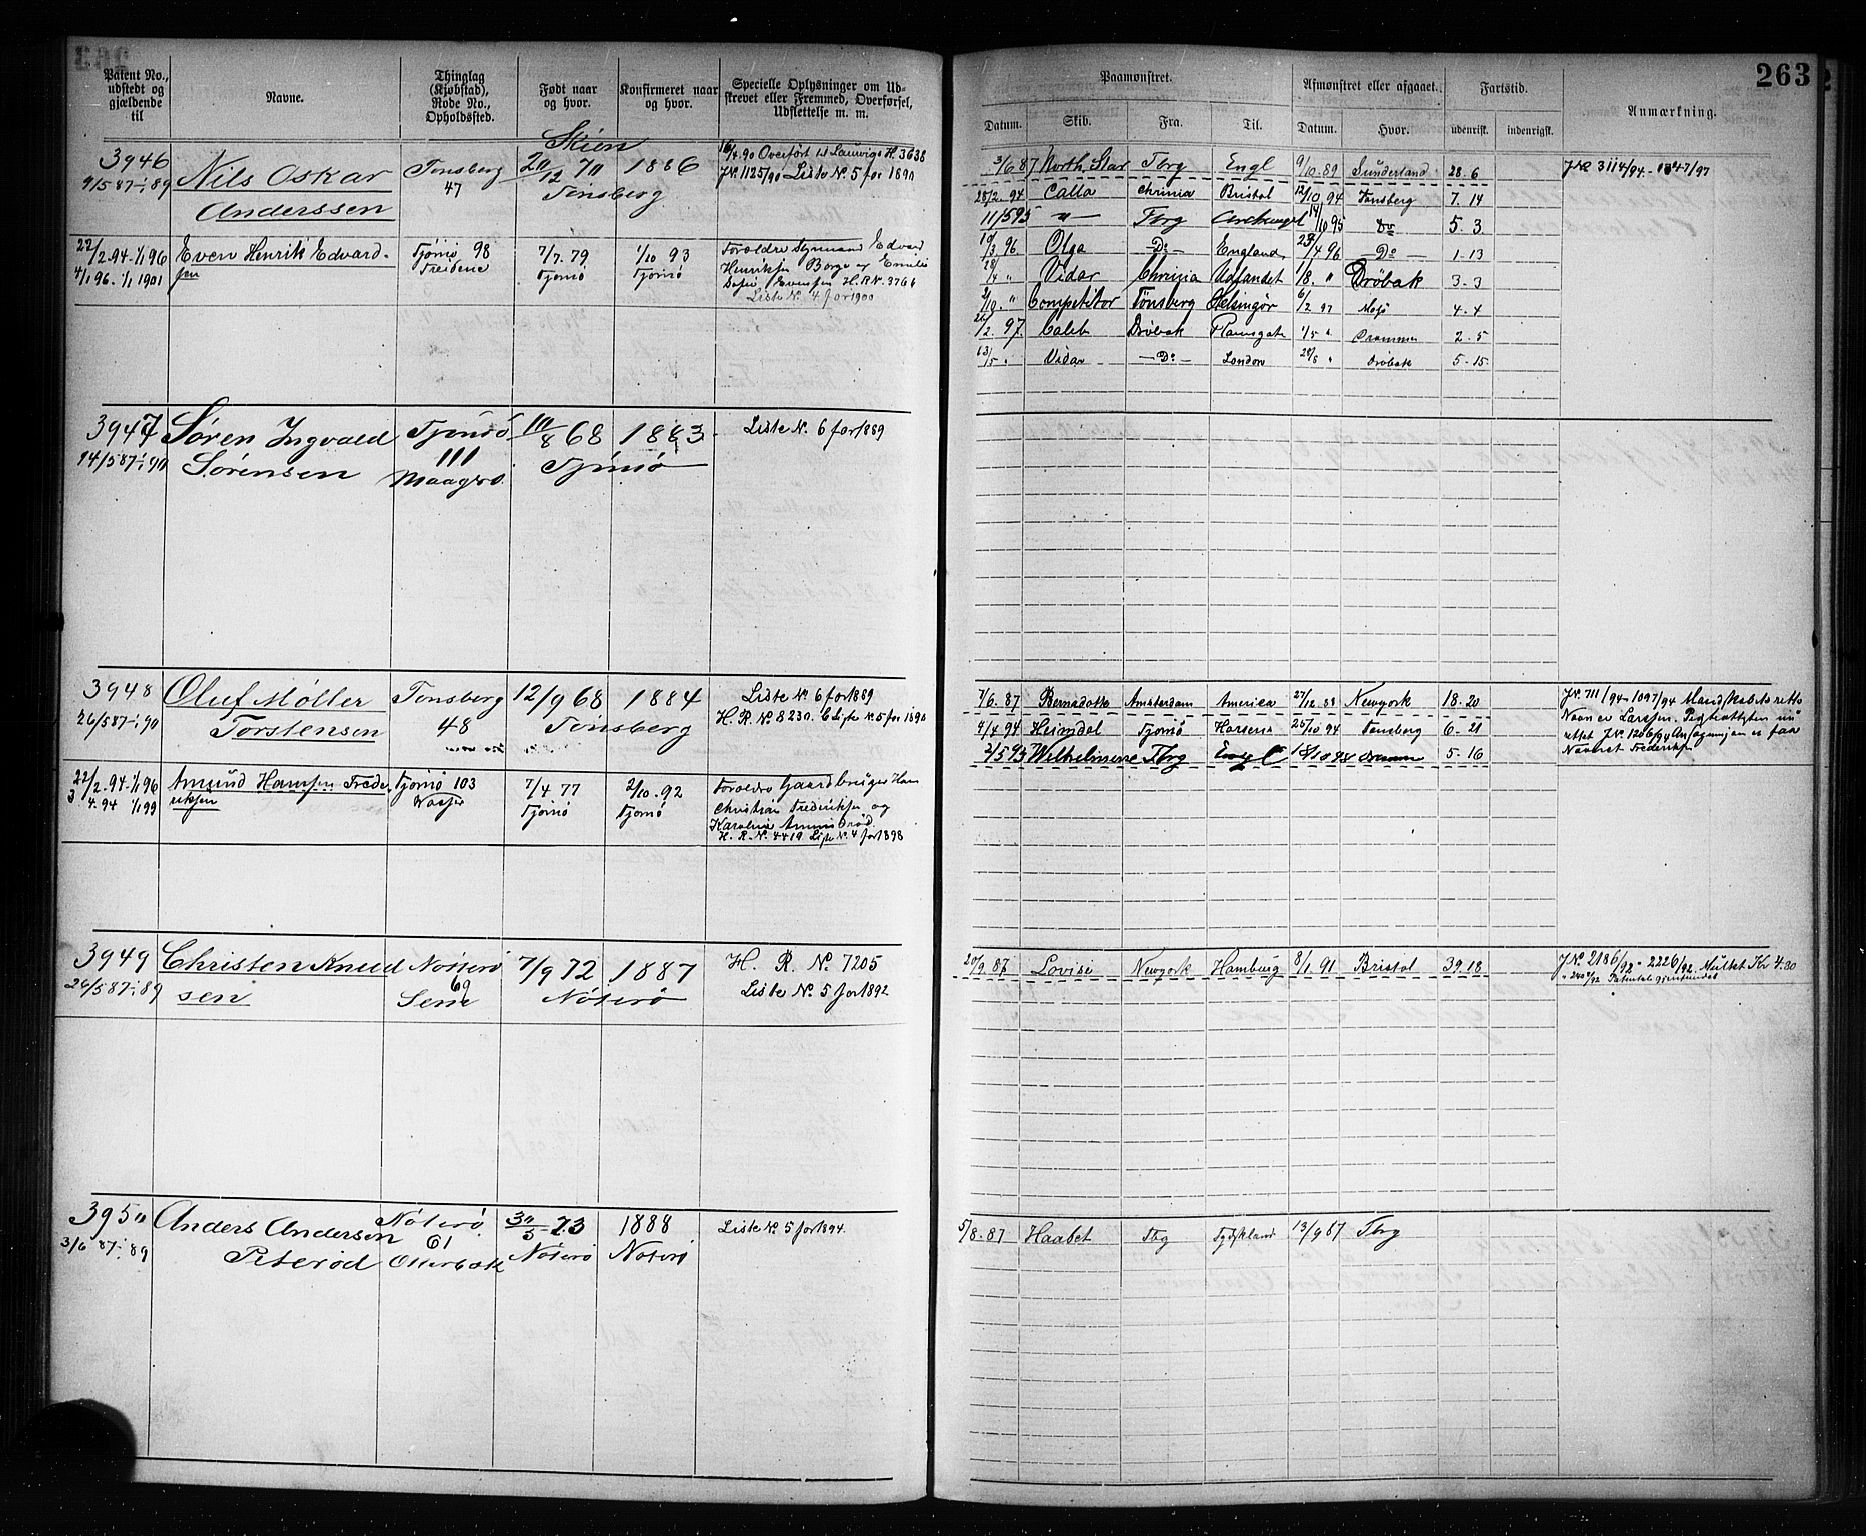 263
Patent No., udstedt og gjældende til
Navne.
Thinglag (Kjøbstad), Rode No., Opholdssted.
Født naar og hvor.
Konfirmeret naar og hvor.
Specielle Oplysninger om Udskrevet eller Fremmed, Overførsel, Udslettelse m. m.
Paamønstret.
Afmønstret eller afgaaet.
Fartstid.
Anmærkning.
Datum. Skib. Fra. Til. Datum. Hvor. udenrigsk. indenrigsk.
3946 Nils Oskar Tønsberg 20/12 70 Skien 1886 Overført til Laurvigs H. 3638
9/5 87-1/1 89 Anderssen 47 Tønsberg J.No. 1125/90 Liste No. 5 for 1890
3/6 87 North Star Tbrg Engl 9/10 89 Sunderland 28-6 J.No. 3114/94
28/2 94 Calla Chrinia Bristol 12/10 94 Tønsberg 7. 14
11/5 95 -"- Tbrg Archangel 14/10 95 Do 5. 3.
10/3 96 Olga -Do- England 23/4 96 -Do- 1-13
22/2.94-1/1 96 Even Henrik Edvard- Tjømø 98 7/7. 79 1/10 93 Forældre Edvard
4/1 96. 1/1 1901 sen Tjømø Tjømø Henriksen Borge og Emilie
Sofie Evensen H.R.N. 3766
Liste N. 4 for 1900
28/4 " Vidar Chrinia Udlandet 1/8. " Drøbak 3-3
2/10. " Competitor Tønsberg Helsingør 6/2 97 Moss 4-4
26/2. 97. Caleb Drøbak Ramsgate 1/5 " Drammen 2-5
Vidar -Do- London Drøbak 5-15.
3947 Søren Ingvald Tjømø 10/8 68 1883 Liste No. 6 for 1889
14/5 87-1/1 90 Sørensen 111 Tjømø
Maagerø
3948 Oluf Møller Tønsberg 12/9 68 1884 Liste No. 6 for 1889
26/5 87-1/1 90 Torstensen 48 Tønsberg H.R.No. 8230. Liste No. 5 for 1890
7/6.87 Bernadotte Amsterdam America 27/12 88 Newyork 18-20 J.No. 711/94-1097/94 Mandskabets rette
4/4 94 Heimdal Tjømø Horsens 25/10 94 Tønsberg 6-21 Navn er Larssen.
2/5 95 Wilhelmine Tbrg Engl Drammen 5-16 rettet J.No. 1206/94
22/2.94-1/1 96 Amund Hansen Frede- Tjømø 103 7/4 77 2/10. 92 Forældre Gaardbruger Hans
4.94 1/1 99 riksen Tjømø Tjømø Christian Frederiksen og
Karoline
H.R.N. 4419 Liste N. 4 for 1898
3949 Christen Knud Nøterø 7/9 72 1887 H. R. No. 7205
26/5 87-1/1 89 sen 69 Nøterø Liste No. 5 for 1892
Sem
20/9. 87 Lovise Newyork Hamburg 8/1 91 Bristol 39 18 J.No. 2186/92-2226/92 Mulktet Kr 4.80
3950 Anders Andersen Nøterø 30/5 73 1888 Liste No. 5 for 1894.
3/6 87-1/1 89 Peterød 61 Nøterø Nøterø
Otterbæk
5/8. 87 Haabet Tbg Tydskland 13/9 87 Tbrg